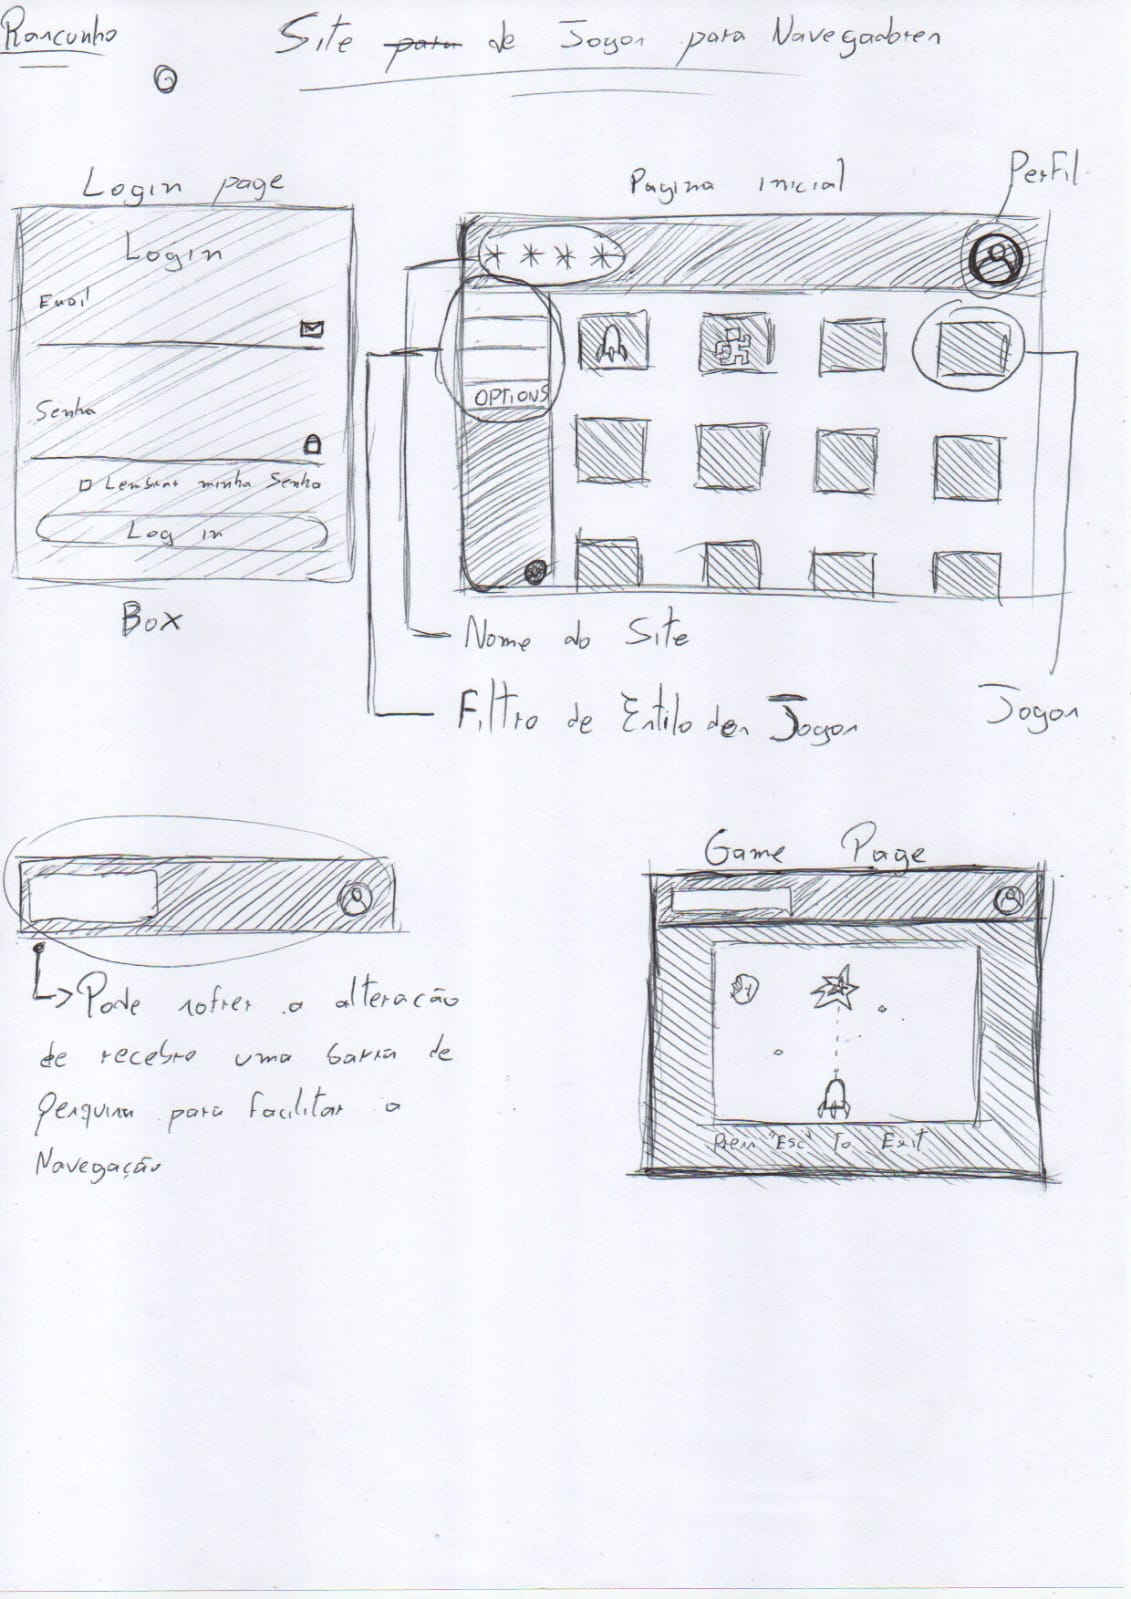 Rascunho
Site para de Jogos para Navegadores
Login page
Login
Email
Senha
Lembrar minha Senha
Log in
Box
Pagina inicial
Perfil
* * * *
OPTIONS
Nome do Site
Filtro de Estilo dos Jogos
Jogos
Pode sofrer a alteração
de recebro uma barra de
pesquisa para facilitar a
Navegação
Game Page
Press "Esc" To Exit